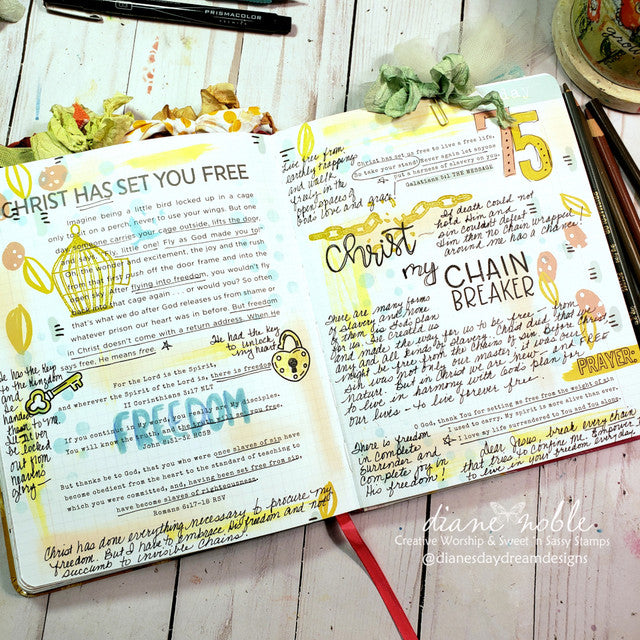 PRISMACOLOR
CHRIST HAS SET YOU FREE
Imagine being a little bird locked up in a cage
only to sit on a perch, never to use your wings. But one
day someone carries your cage outside, lifts the door,
and says, little one! Fly as God made you to!
Oh the wonder and excitement, the joy and the rush
from that first push off the door frame and into the
open air! After flying into freedom, you wouldn't fly
back into that cage again . . . or would you? So often
that's what we do after God releases us from shame or
whatever prison our heart was in before. But freedom
in Christ doesn't come with a return address. When He
says free, He means free.
He had the key
to unlock
my heart
He has the key
to the kingdom
and
He
handed
them to me.
I'll never
be locked
out from
heaven's
glory
For the Lord is the Spirit,
and wherever the Spirit of the Lord is, there is freedom
II Corinthians 3:17 NLT
FREEDOM
If you continue in My word, you really are My disciples.
You will know the truth and the truth will set you free.
John 8:31-32 HCSB
But thanks be to God, that you who were once slaves of sin have
become obedient from the heart to the standard of teaching to
which you were committed, and, having been set free from sin,
have become slaves of righteousness.
Romans 6:17-18 RSV
Christ has done everything necessary to procure my
freedom. But I have to embrace His freedom and not
succumb to invisible chains.
day
75
Live free from
earthly trappings
and walk
freely in the
open spaces of
God's love and grace.
Christ has set us free to live a free life.
So take your stand! Never again let anyone
put a harness of slavery on you.
Galatians 5:1 THE MESSAGE
If death could not
hold Him and
sin couldn't defeat
Him then no chain wrapped
around me has a chance!
Christ
my CHAIN
BREAKER
There are many forms
of slavery and none
of them is God's plan
for us. He created us
and made the way for us to be free - from
any and all kinds of slavery. Christ died that we
might be free from the chains of sin. Before Christ
sin was our master and it was our
nature. But in Christ we are new and FREE
to live in harmony with God's plan for
our lives - to live forever free.
PRAYER:
O God, thank You for setting me free from the weight of sin
I used to carry. My spirit is more alive than ever.
I love my life surrendered to You and You alone.
There is freedom
in complete
surrender and
complete joy in
His freedom!
Dear Jesus, break every chain
that tries to confine me. Empower me
to live in your freedom everyday.
diane noble
Creative Worship & Sweet 'n Sassy Stamps
@dianesdaydreamdesigns